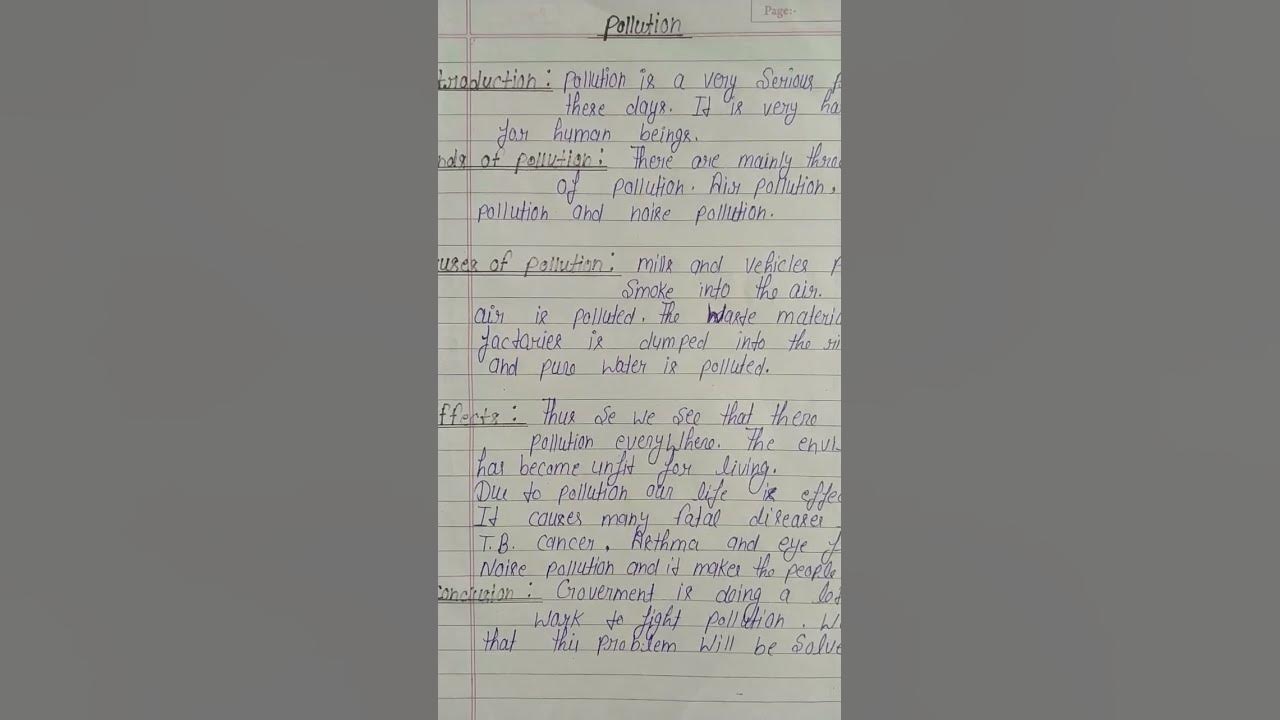 Page:-
Pollution
troduction: Pollution is a very Serious
these days. It is very ha
for human beings.
nds of pollution: There are mainly three
of pollution. Air pollution,
pollution and noise pollution.
uses of pollution: mills and vehicles
Smoke into the air.
air is polluted. The Waste materia
factories is dumped into the ri
and pure water is polluted.
ffects: Thus Se we see that there
pollution everywhere. The envi
has become unfit for living.
Due to pollution our life is effe
It causes many fatal diseases
T.B. cancer, Asthma and eye
Noise pollution and it makes the people
conclusion: Goverment is doing a lot
work to fight pollution. W
that this problem will be Solve